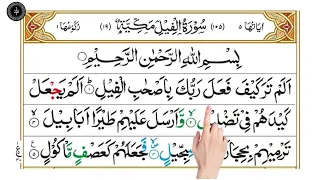 اٰيَاتُهَا ٥ (١٠٥) سُوْرَةُ الْفِيْلِ مَكِّيَّةٌ (١٩) رُكُوْعُهَا ١
بِسْمِ اللّٰهِ الرَّحْمٰنِ الرَّحِيْمِ
اَلَمْ تَرَ كَيْفَ فَعَلَ رَبُّكَ بِاَصْحٰبِ الْفِيْلِ ۝ اَلَمْ يَجْعَلْ
كَيْدَهُمْ فِيْ وَّاَرْسَلَ عَلَيْهِمْ طَيْرًا اَبَابِيْلَ ۝
تَرْمِيْهِمْ ۝ فَجَعَلَهُمْ كَعَصْفٍ مَّاْكُوْلٍ ۝